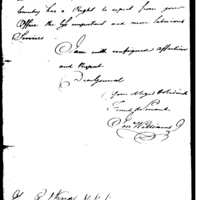 Country has a Right to expect from your
Office the if important and more laborious
Services
I am with unfeigned affection
and Respect
Dear General
Your Most Obedient
Friend & Servant
Jon Williams